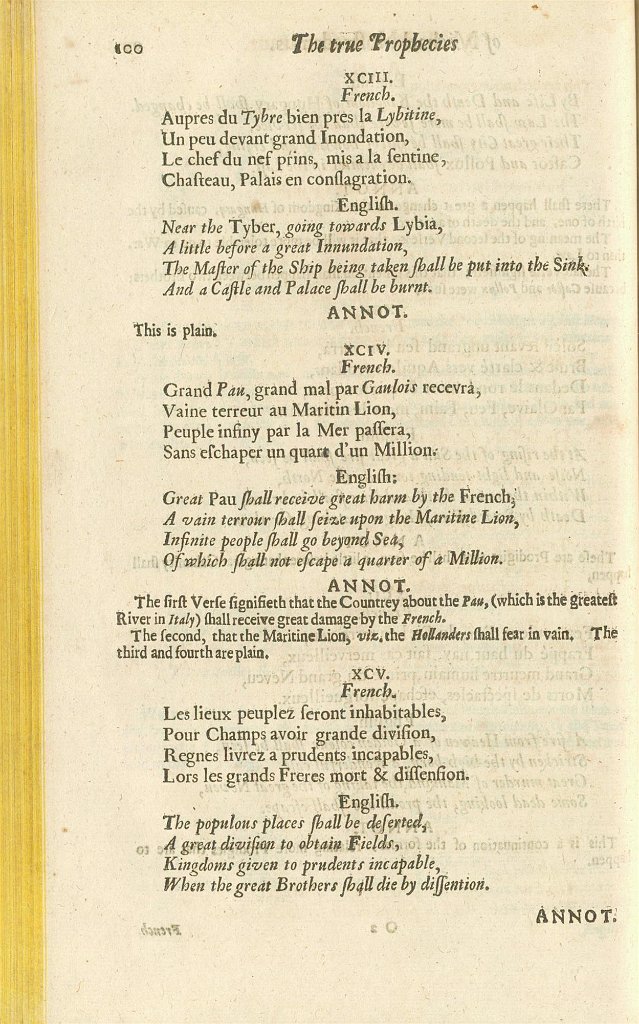 100 The true Prophecies
XCIII.
French.
Aupres du Tybre bien pres la Lybitine,
Un peu devant grand Inondation,
Le chef du nef prins, mis a la ſentine,
Chaſteau, Palais en conflagration.
Engliſh.
Near the Tyber, going towards Lybia,
A little before a great Innundation,
The Maſter of the Ship being taken ſhall be put into the Sink.
And a Caſtle and Palace ſhall be burnt.
ANNOT.
This is plain.
XCIV.
French.
Grand Pau, grand mal par Gaulois recevrà,
Vaine terreur au Maritin Lion,
Peuple infiny par la Mer paſſera,
Sans eſchaper un quart d'un Million.
Engliſh:
Great Pau ſhall receive great harm by the French,
A vain terrour ſhall ſeize upon the Maritine Lion,
Infinite people ſhall go beyond Sea,
Of which ſhall not eſcape a quarter of a Million.
ANNOT.
The firſt Verſe ſignifieth that the Countrey about the Pau, (which is the greateſt
River in Italy) ſhall receive great damage by the French.
The ſecond, that the Maritine Lion, viz. the Hollanders ſhall fear in vain. The
third and fourth are plain.
XCV.
French.
Les lieux peuplez ſeront inhabitables,
Pour Champs avoir grande diviſion,
Regnes livrez a prudents incapables,
Lors les grands Freres mort & diſſenſion.
Engliſh.
The populous places ſhall be deſerted,
A great diviſion to obtain Fields,
Kingdoms given to prudents incapable,
When the great Brothers ſhall die by diſſention.
ANNOT.